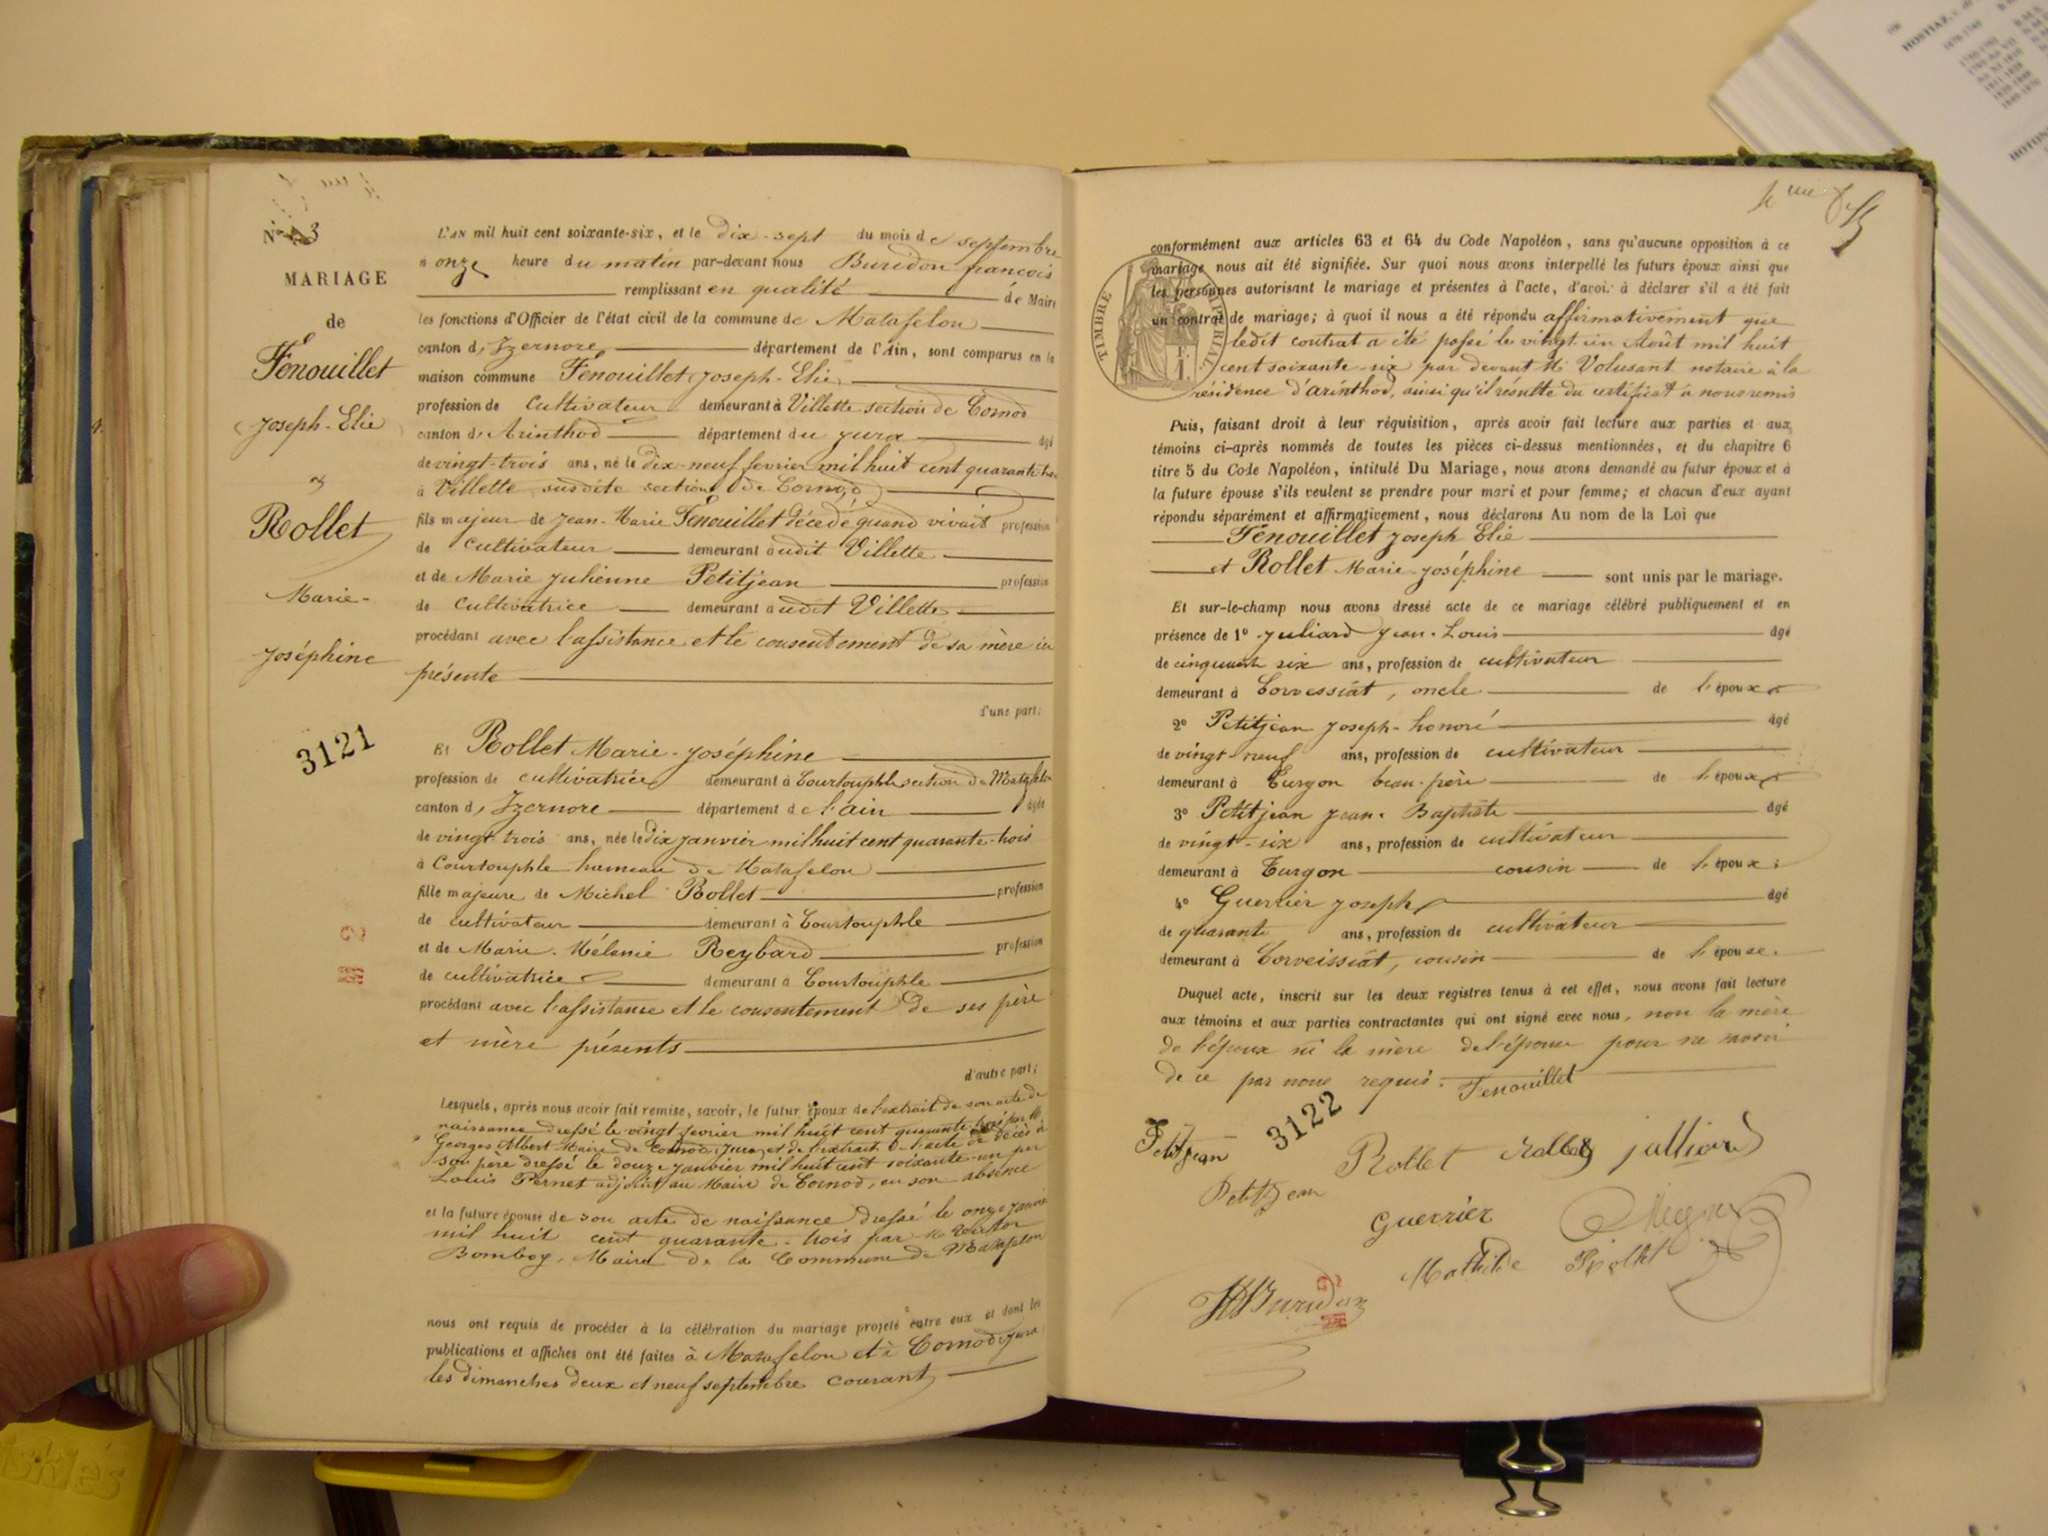 N° 3
MARIAGE
de
Fenouillet
Joseph-Elie
et
Rollet
Marie-
Joséphine
3121
L'AN mil huit cent soixante-six, et le dix-sept du mois de septembre
à onze heure du matin par-devant nous Buridon françois
remplissant en qualité de Maire
les fonctions d'Officier de l'état civil de la commune de Matafelon
canton d'Izernore, département de l'Ain, sont comparus en la
maison commune Fenouillet Joseph-Elie
profession de cultivateur demeurant à Villette section de Cornod
canton d'Arinthod département du jura âgé
de vingt-trois ans, né le dix-neuf fevrier mil huit cent quarante-trois
à Villette susdite section de Cornod
fils majeur de Jean-Marie Fenouillet décedé quand vivait profession
de cultivateur demeurant audit Villette
et de Marie Julienne Petitjean profession
de cultivatrice demeurant audit Villette
procédant avec l'assistance et le consentement de sa mère ici
présente
d'une part;
Et Rollet Marie-Joséphine
profession de cultivatrice demeurant à Courtouphle section de Matafelon
canton d'Izernore département de l'ain âgée
de vingt-trois ans, née le dix janvier mil huit cent quarante-trois
à Courtouphle hameau de Matafelon
fille majeure de Michel Rollet profession
de cultivateur demeurant à Courtouphle
et de Marie-Mélanie Reybard profession
de cultivatrice demeurant à Courtouphle
procédant avec l'assistance et le consentement de ses père
et mère présents
d'autre part;
Lesquels, après nous avoir fait remise, savoir, le futur époux de l'extrait de son acte de
naissance dressé le vingt fevrier mil huit cent quarante-trois par M.
Georges Albert Maire de Cornod, Jura, et de l'extrait de l'acte de décès de
son père dressé le douze janvier mil huit cent soixante-un par
Louis Pernet adjoint au Maire de Cornod, en son absence
et la future épouse de son acte de naissance dressé le onze janvier
mil huit cent quarante-trois par M.
Bomboy, Maire de la Commune de Matafelon
nous ont requis de procéder à la célébration du mariage projeté entre eux et dont les
publications et affiches ont été faites à Matafelon et à Cornod, jura
les dimanches deux et neuf septembre courant
conformément aux articles 63 et 64 du Code Napoléon, sans qu'aucune opposition à ce
mariage nous ait été signifiée. Sur quoi nous avons interpellé les futurs époux ainsi que
les personnes autorisant le mariage et présentes à l'acte, d'avoir à déclarer s'il a été fait
un contrat de mariage; à quoi il nous a été répondu affirmativement que
ledit contrat a été passé le vingt un Août mil huit
cent soixante-six par devant Me Volusant notaire à la
résidence d'arinthod, ainsi qu'il résulte du certificat à nous remis
TIMBRE IMPÉRIAL
Puis, faisant droit à leur réquisition, après avoir fait lecture aux parties et aux
témoins ci-après nommés de toutes les pièces ci-dessus mentionnées, et du chapitre 6
titre 5 du Code Napoléon, intitulé Du Mariage, nous avons demandé au futur époux et à
la future épouse s'ils veulent se prendre pour mari et pour femme; et chacun d'eux ayant
répondu séparément et affirmativement, nous déclarons Au nom de la Loi que
Fenouillet Joseph Elie
et Rollet Marie-Joséphine sont unis par le mariage.
Et sur-le-champ nous avons dressé acte de ce mariage célébré publiquement et en
présence de 1° Juliard Jean-Louis âgé
de cinquante six ans, profession de cultivateur
demeurant à Corvessiat, oncle de l'époux
2° Petitjean Joseph-honoré âgé
de vingt-neuf ans, profession de cultivateur
demeurant à Turgon beau-frère de l'époux
3° Petitjean Jean-Baptiste âgé
de vingt-six ans, profession de cultivateur
demeurant à Turgon cousin de l'époux;
4° Guerrier Joseph âgé
de quarante ans, profession de cultivateur
demeurant à Corveissiat, cousin de l'épouse.
Duquel acte, inscrit sur les deux registres tenus à cet effet, nous avons fait lecture
aux témoins et aux parties contractantes qui ont signé avec nous, non la mère
de l'époux ni la mère de l'épouse pour ne savoir
de ce par nous requis. Fenouillet
3122
Petitjean Rollet Rollet julliard
Petitjean
Guerrier
Mathilde Rollet
Buridon
HOSTIAZ